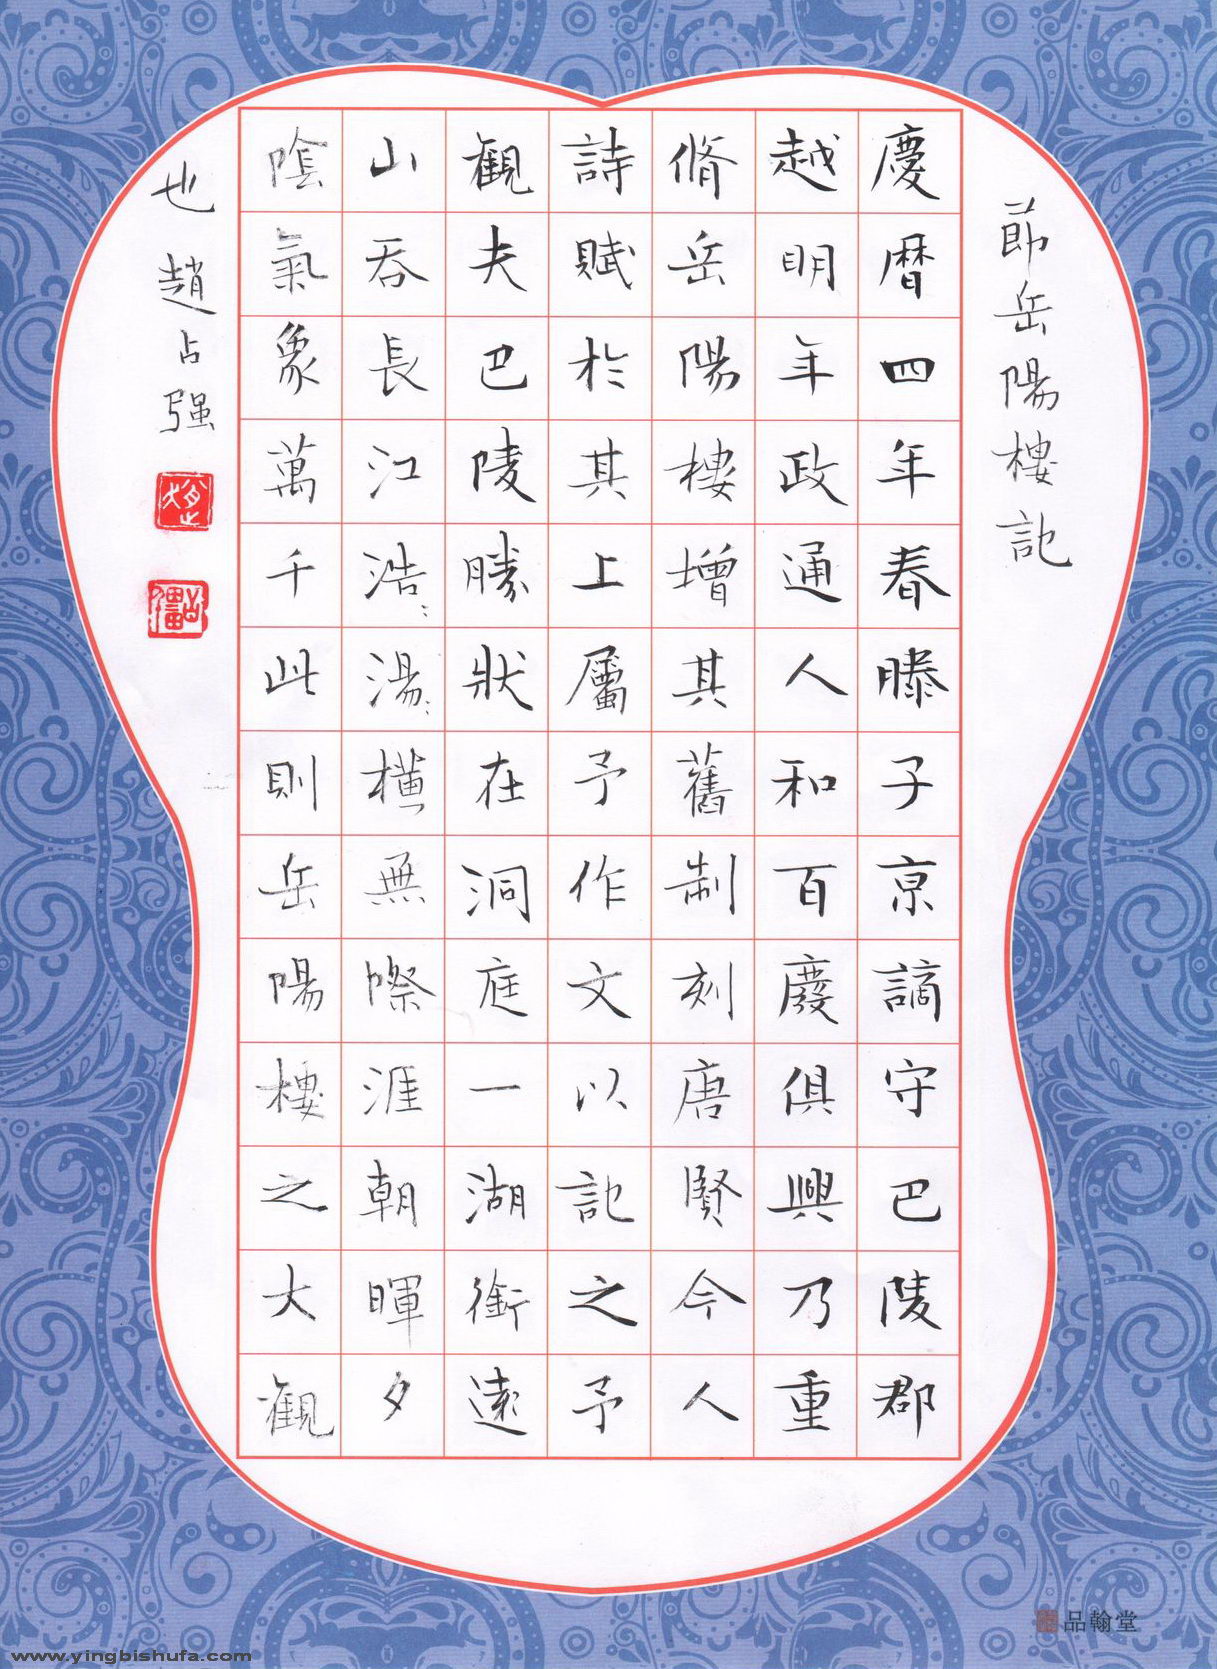 節岳陽樓記
慶曆四年春滕子京謫守巴陵郡
越明年政通人和百廢俱興乃重
脩岳陽樓增其舊制刻唐賢今人
詩賦於其上屬予作文以記之予
觀夫巴陵勝狀在洞庭一湖銜遠
山吞長江浩〻湯〻橫無際涯朝暉夕
陰氣象萬千此則岳陽樓之大觀
也 趙占強
品翰堂
www.yingbishufa.com